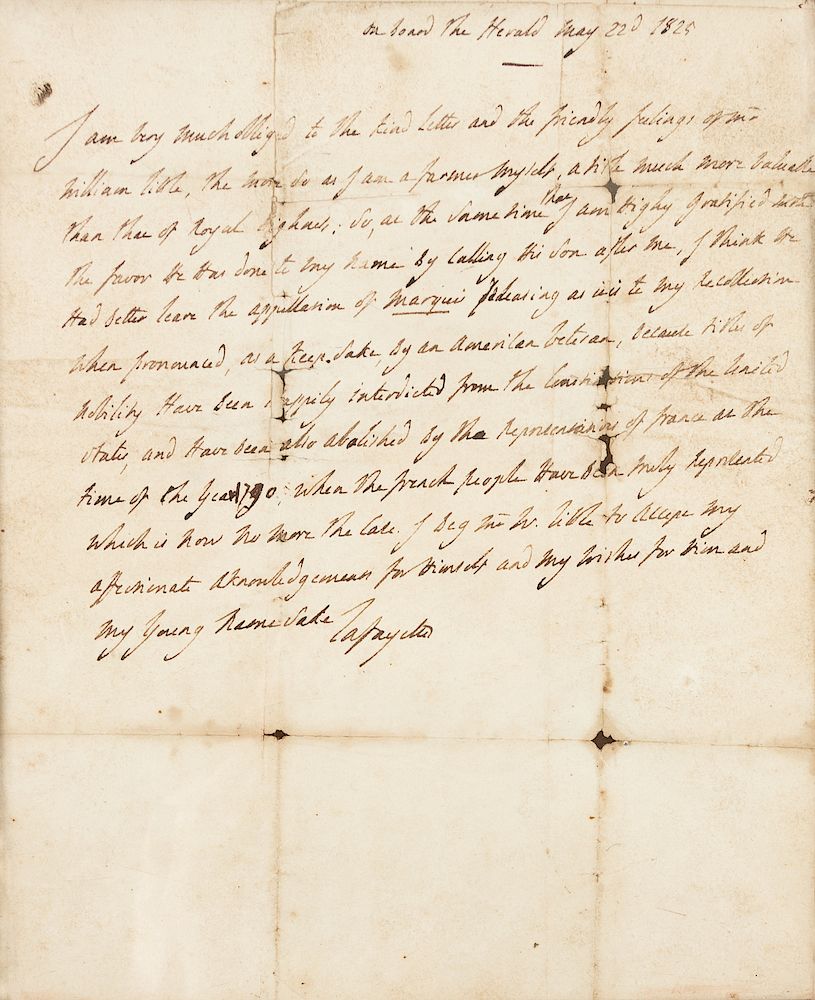 on board the Herald May 22d 1825
I am very much obliged to the kind letter and the friendly feelings of Mr
William little, the more so as I am a farmer myself, a title much more valuable
than that of Royal Highness; So, at the same time that I am highly gratified with
the favor He Has done to my name by Calling His Son after me, I think He
Had better leave the appellation of Marquis pleasing as it is to my recollection
when pronounced, as a keep-sake, by an American veteran, because titles of
nobility Have been happily interdicted from the Constitutions of the United
states, and Have been also abolished by the Representatives of france at the
time of the Year 1790 when the french people Have been truly represented
which is now no more the Case. I beg Mr W. little to accept my
affectionate aknowledgements for Himself and my wishes for Him and
my Young Name Sake Lafayette